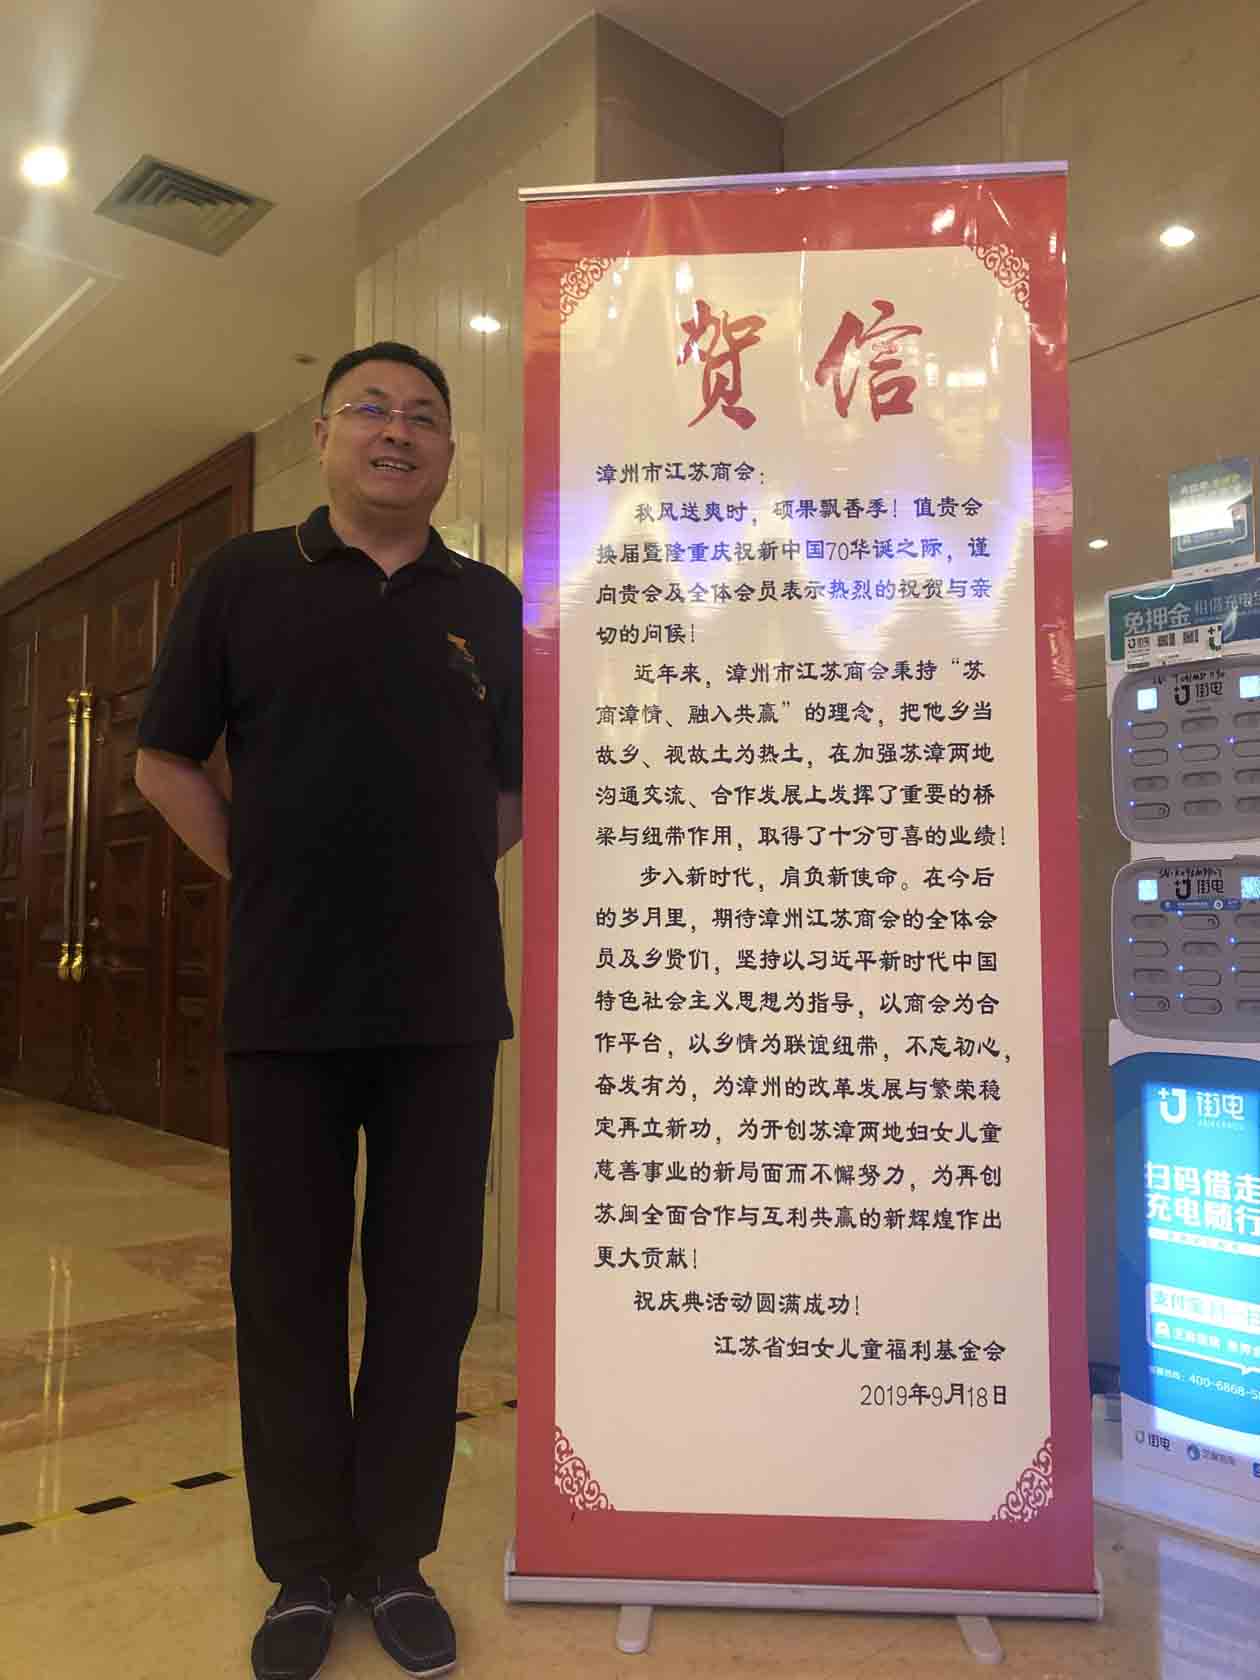 贺信
漳州市江苏商会：
秋风送爽时，硕果飘香季！值贵会
换届暨隆重庆祝新中国70华诞之际，谨
向贵会及全体会员表示热烈的祝贺与亲
切的问候！
近年来，漳州市江苏商会秉持“苏
商漳情、融入共赢”的理念，把他乡当
故乡、视故土为热土，在加强苏漳两地
沟通交流、合作发展上发挥了重要的桥
梁与纽带作用，取得了十分可喜的业绩！
步入新时代，肩负新使命。在今后
的岁月里，期待漳州江苏商会的全体会
员及乡贤们，坚持以习近平新时代中国
特色社会主义思想为指导，以商会为合
作平台，以乡情为联谊纽带，不忘初心，
奋发有为，为漳州的改革发展与繁荣稳
定再立新功，为开创苏漳两地妇女儿童
慈善事业的新局面而不懈努力，为再创
苏闽全面合作与互利共赢的新辉煌作出
更大贡献！
祝庆典活动圆满成功！
江苏省妇女儿童福利基金会
2019年9月18日
免押金 租借充电
街电
街电
街电
扫码借走
充电随行
支付宝扫一
400-6868-5
街电